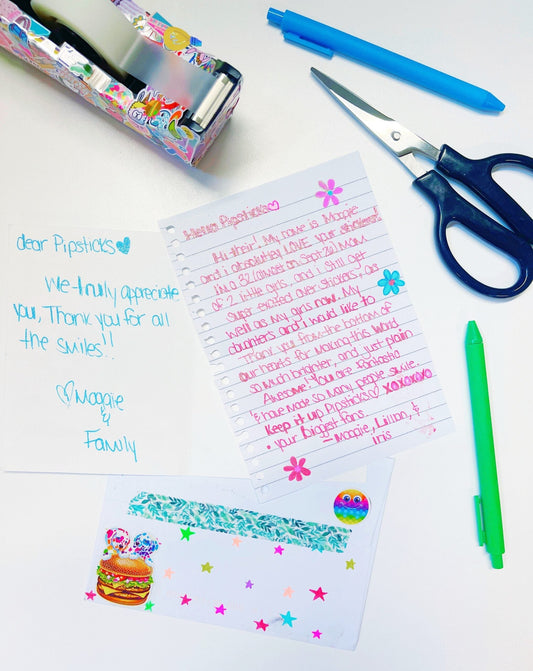 dear Pipsticks
We truly appreciate
you, Thank you for all
the smiles!!
Maggie
&
Family
Hello Pipsticks
Hi their! My name is Maggie
and i absolutley LOVE your stickers!
I'm a 32 (almost on Sept 26) Mom
of 2 little girls, and i still get
super excited over stickers, as
well as my girls now. My
daughters and i would like to
Thank you from the bottom of
our hearts for making this world
so much brighter, and just plain
Awesome! You are fantastic
& have made so many people smile.
Keep it up Pipsticks XOXOXOXO
your Biggest fans.
- Maggie, Lillian, &
Iris